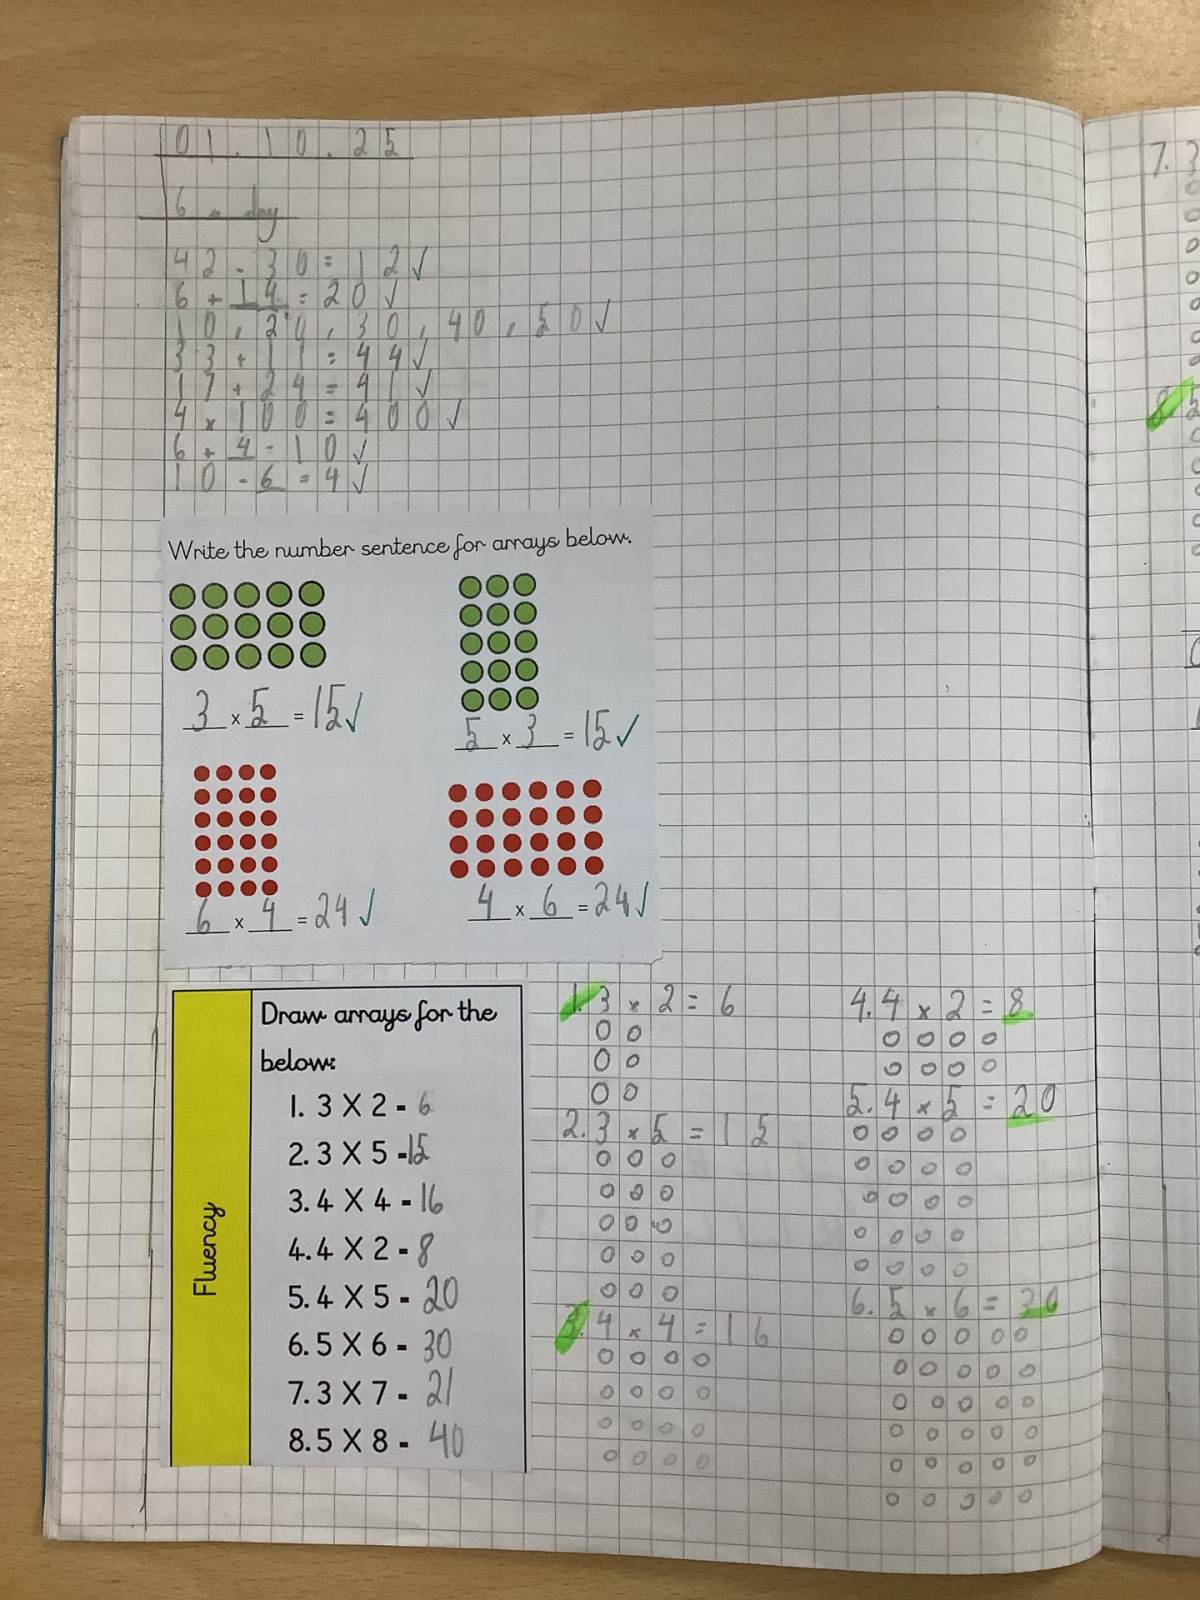 01.10.25
6 a day
42 - 30 = 12 ✓
6 + 14 = 20 ✓
10, 20, 30, 40, 50 ✓
33 + 11 = 44 ✓
17 + 24 = 41 ✓
4 x 100 = 400 ✓
6 + 4 = 10 ✓
10 - 6 = 4 ✓
Write the number sentence for arrays below.
3 x 5 = 15 ✓
5 x 3 = 15 ✓
6 x 4 = 24 ✓
4 x 6 = 24 ✓
Fluency
Draw arrays for the
below:
1. 3 X 2 - 6
2. 3 X 5 - 15
3. 4 X 4 - 16
4. 4 X 2 - 8
5. 4 X 5 - 20
6. 5 X 6 - 30
7. 3 X 7 - 21
8. 5 X 8 - 40
1. 3 x 2 = 6
2. 3 x 5 = 15
3. 4 x 4 = 16
4. 4 x 2 = 8
5. 4 x 5 = 20
6. 5 x 6 = 30
7. 3
8. 5